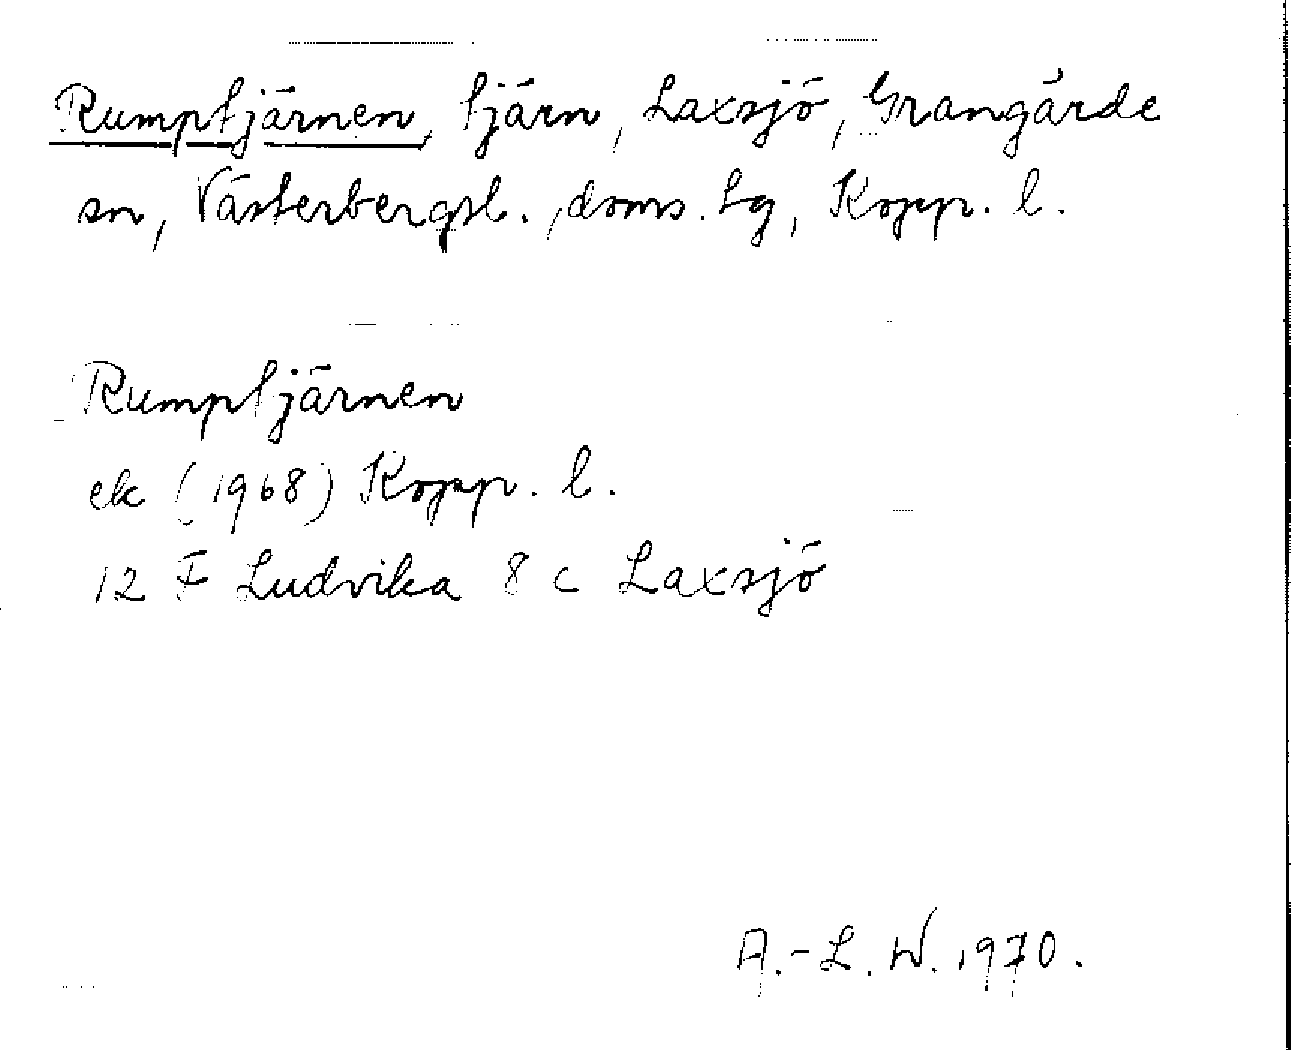 Rumptjärnen, tjärn, Laxsjö, Grangärde
sn, Västerbergsl. doms. tg, Kopp. l.
Rumptjärnen
ek (1968) Kopp. l.
12 F Ludvika 8 c Laxsjö
A.-L. W. 1970.